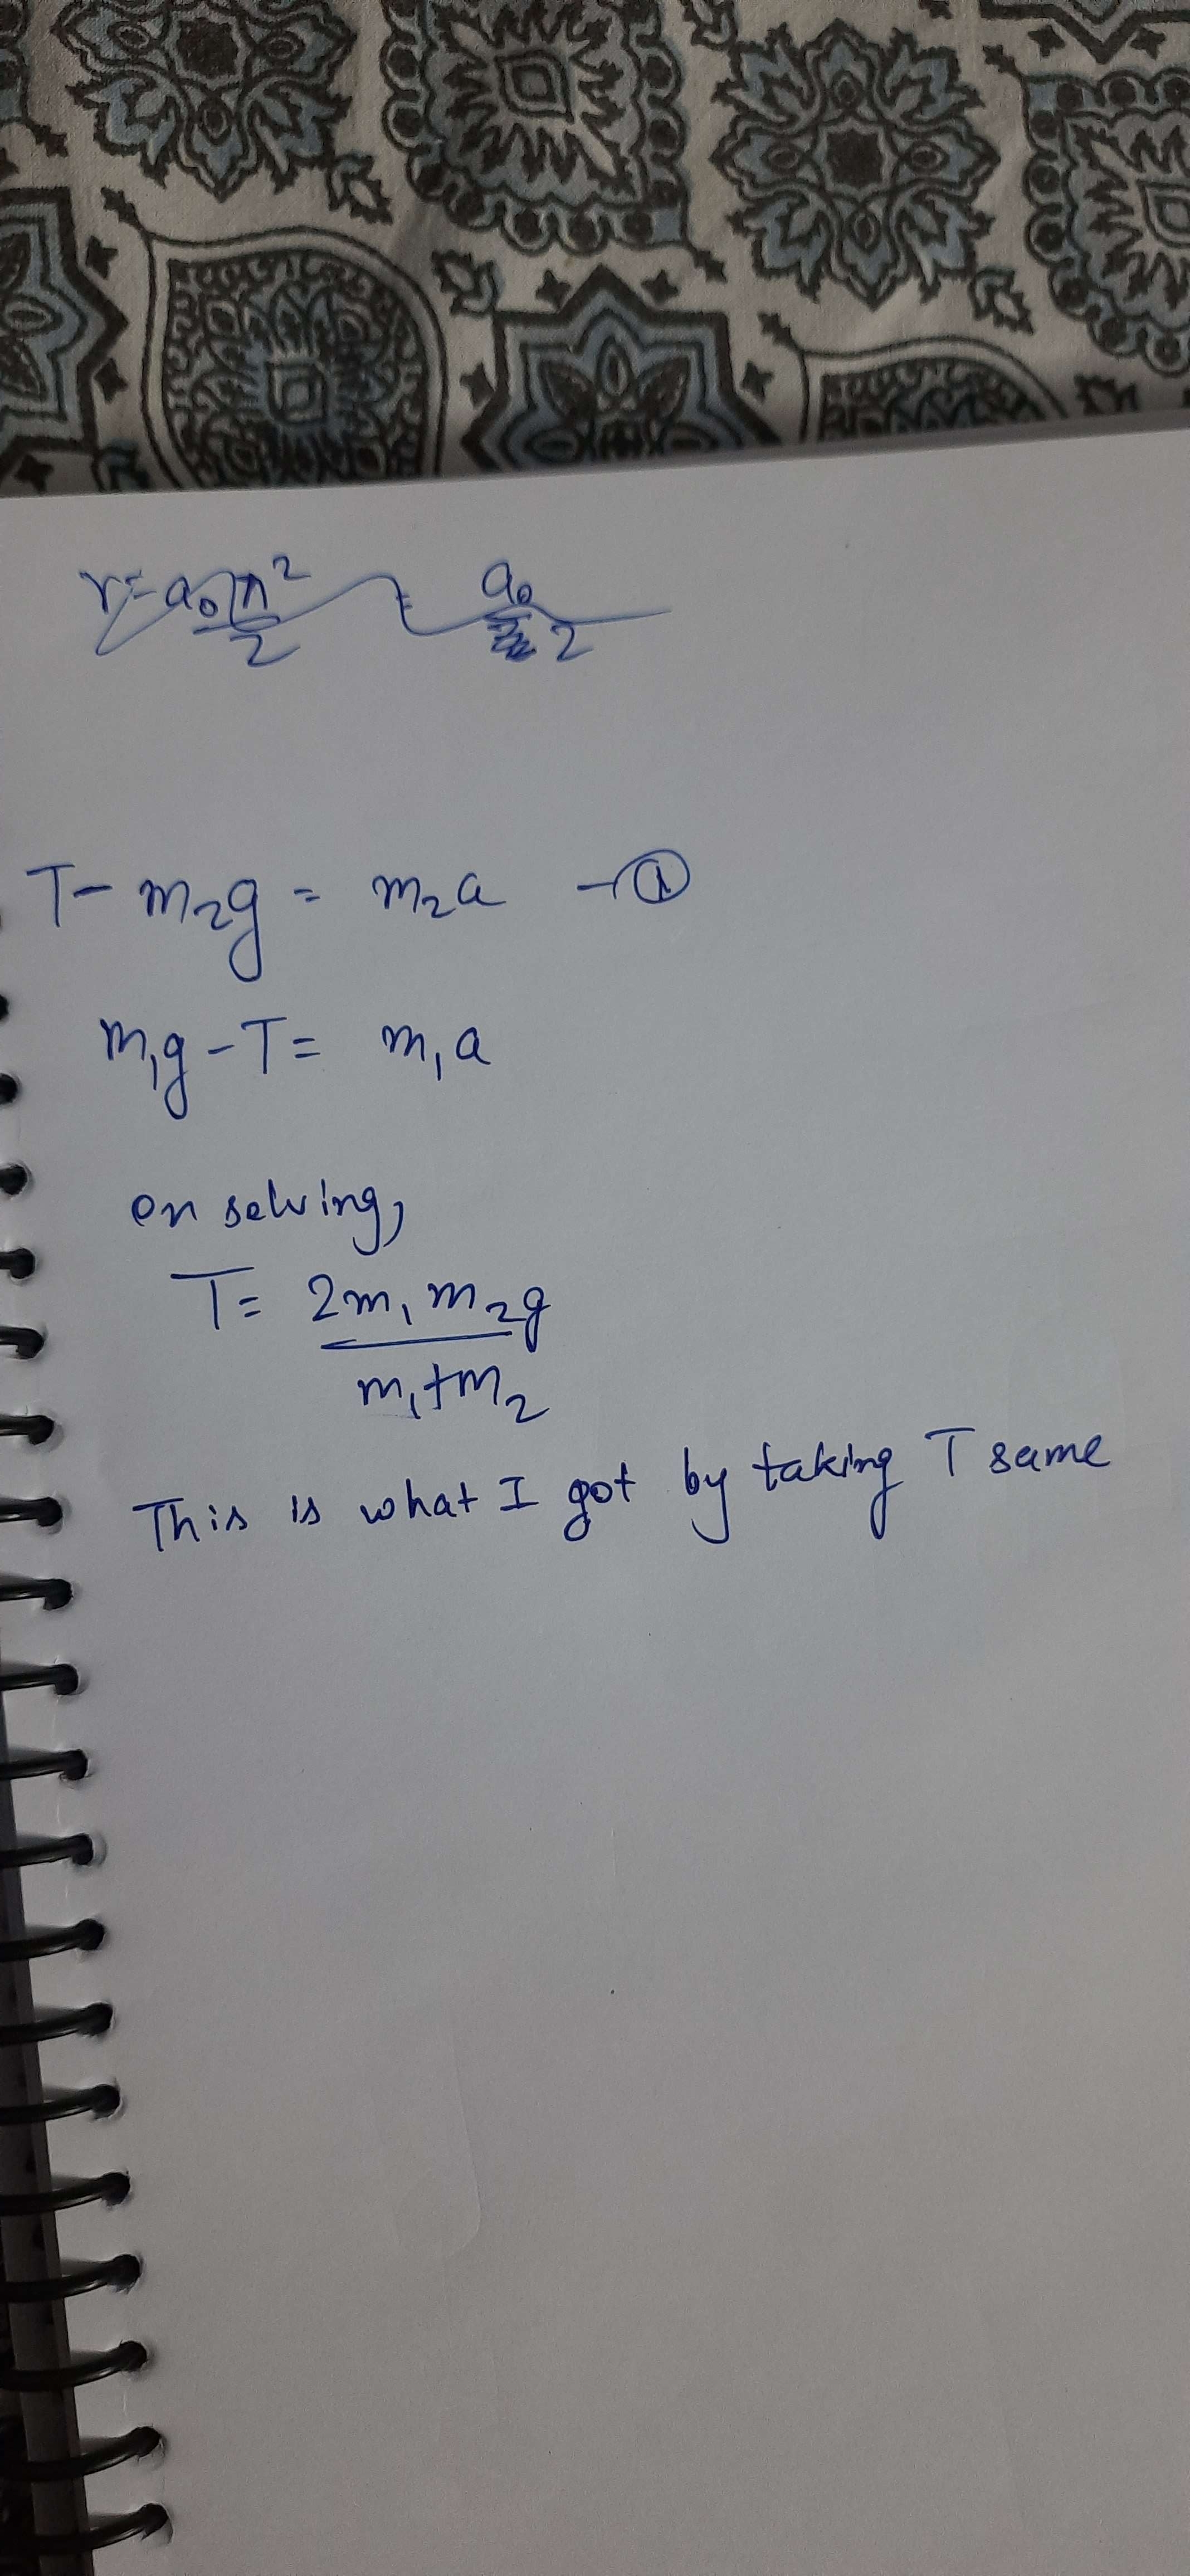 r = a₀n²/2 = a₀/2
T - m₂g = m₂a - ①
m₁g - T = m₁a
on solving,
T = 2m₁m₂g
m₁+m₂
This is what I got by taking T same